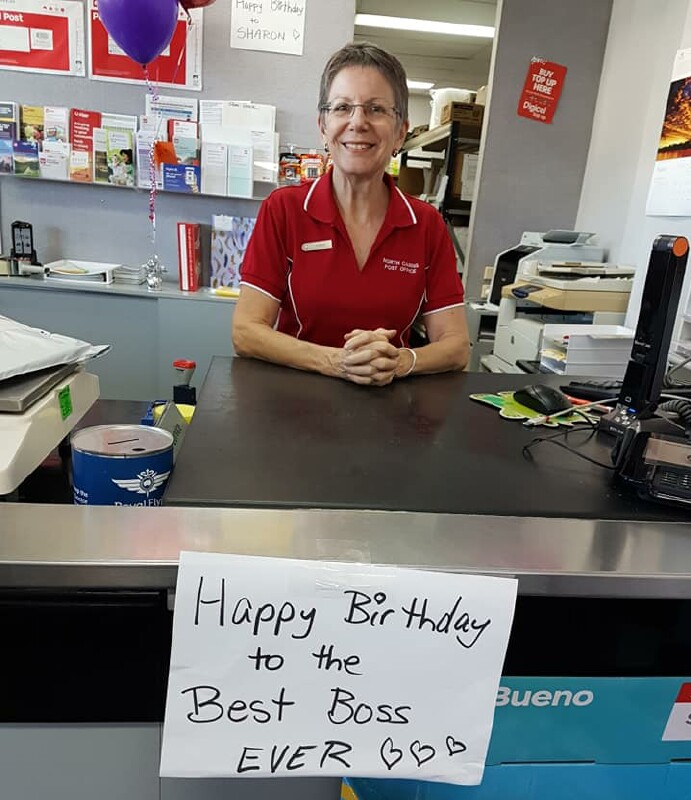 Post
Happy Birthday
to
SHARON
BUY
TOP UP
HERE
Digicel
NORTH CAIRNS
POST OFFICE
Royal Flyi
Happy Birthday
to the
Best Boss
EVER
Bueno